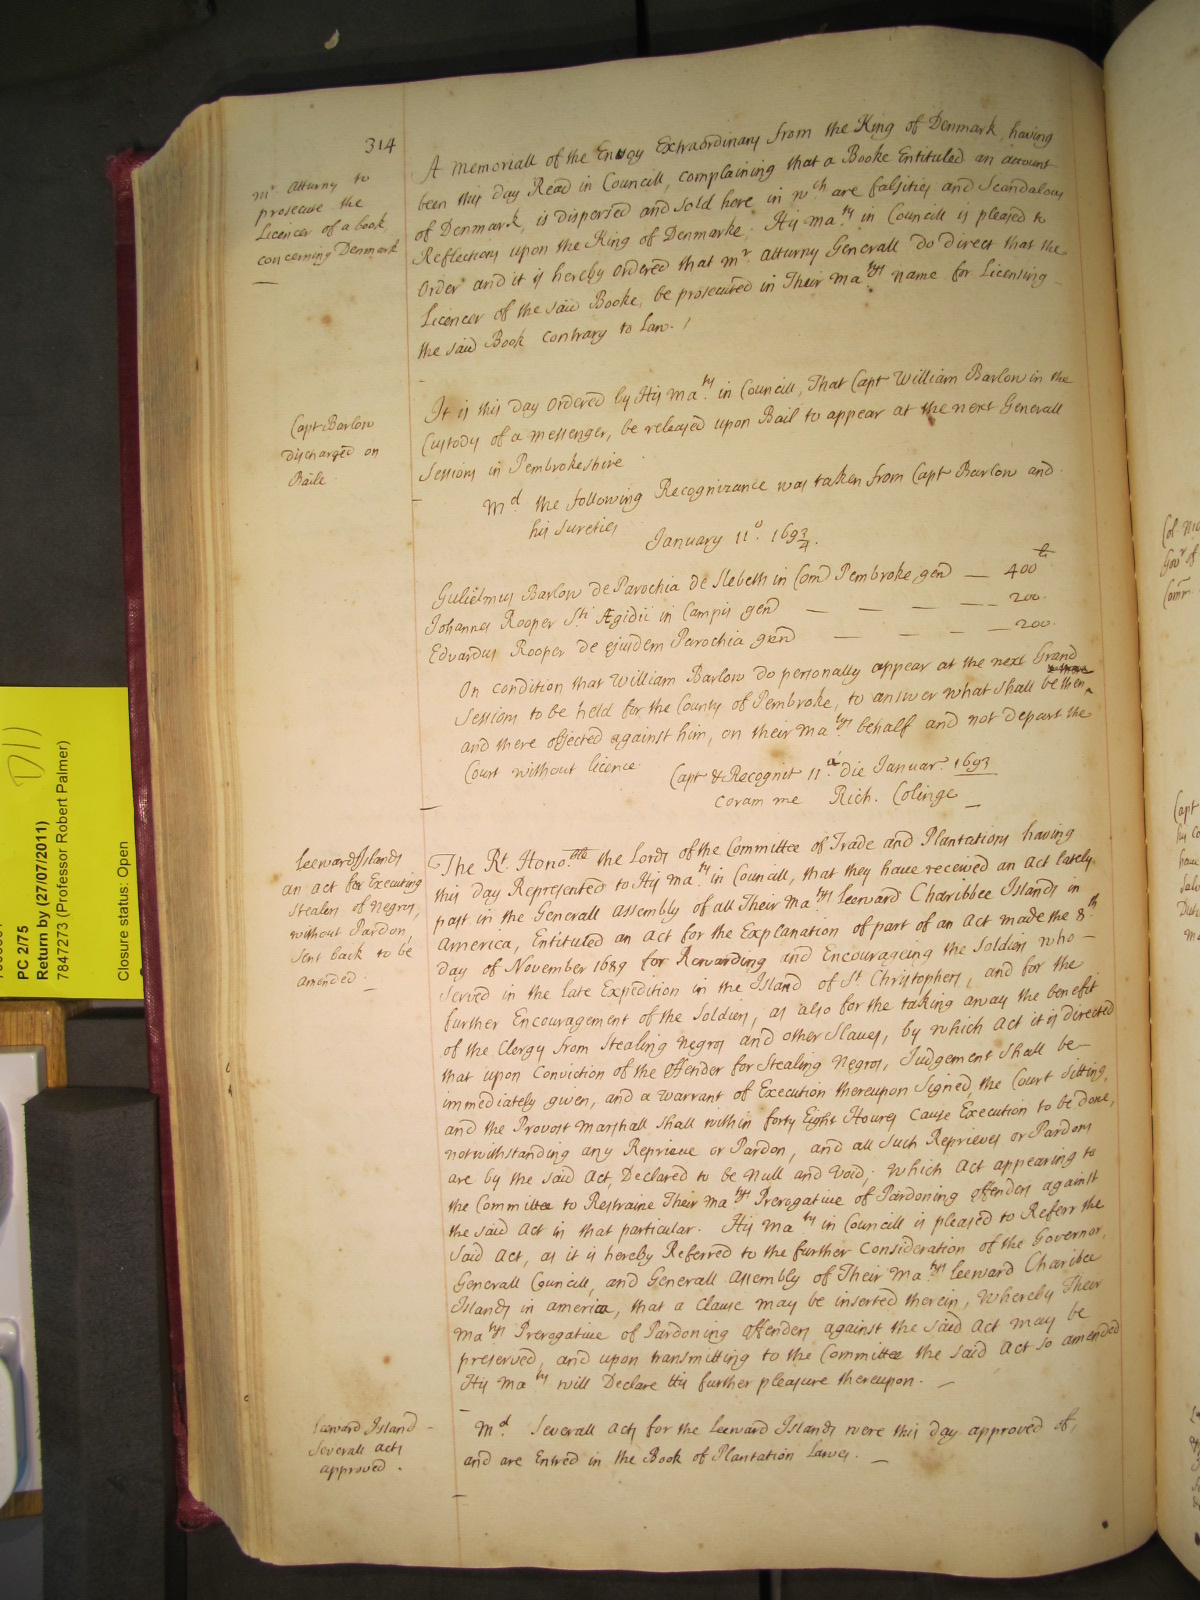 314
mr. Atturny to
prosecute the
Licencer of a book,
concerning Denmark
A Memoriall of the Envoy Extraordinary from the King of Denmark, having
been this day Read in Councill, complaining that a Booke Entituled an account
of Denmark, is dispersed and sold here in wch are falsities and Scandalous
Reflections upon the King of Denmarke, His Maty. in Councill is pleased to
Order and it is hereby Ordered that Mr. Atturny Generall do direct that the
Licencer of the said Booke, be prosecuted in Their Matys. name for Licensing
the said Book contrary to Law.
Capt. Barlow
discharged on
Baile
It is this day Ordered by His Maty. in Councill, That Capt William Barlow in the
Custody of a messenger, be released upon Bail to appear at the next Generall
Sessions in Pembrokeshire
Md. the following Recognizance was taken from Capt Barlow and
his sureties
January 11o. 1693/4.
Guliëlmus Barlow de Parochia de Slebeth in Com Pembroke, gen — 400 li
Johannes Rooper Sti. Ægidii in Campis gen — — — — 200.
Edvardus Rooper de ejusdem Parochia gen — — — — 200.
On condition that William Barlow do personally appear at the next Grand
Sessions to be held for the County of Pembroke, to answer what shall be then
and there objected against him, on their Matys. behalf and not depart the
Court without licence
Capt & Recognit 11a. die Januar. 1693
coram me Rich. Colinge
Leeward Islands
an act for Executing
Stealers of Negros,
without Pardon,
sent back to be
amended
The Rt. Honoble. the Lords of the Committee of Trade and Plantations having
this day Represented to His Maty. in Councill, that they have received an Act lately
past in the Generall Assembly of all Their Matys. Leeward Charibbee Islands in
America, Entituled an Act for the Explanation of part of an Act made the 8th.
day of November 1689 for Rewarding and Encourageing the Soldiers who
served in the late Expedition in the Island of St. Christophers, and for the
further Encouragement of the Soldiers, as also for the taking away the benefit
of the Clergy from Stealing Negros and other Slaves, by which Act it is directed
that upon Conviction of the Offender for Stealing Negros, Judgement shall be
immediately given, and a Warrant of Execution thereupon Signed, the Court sitting,
and the Provost Marshall shall within forty Eight Houres cause Execution to be done,
notwithstanding any Reprieve or Pardon, and all such Reprieves or Pardons
are by the said Act, Declared to be Null and Void; which Act appearing to
the Committee to Restraine Their Matys. Prerogative of Pardoning Offenders against
the said Act in that particular. His Maty in Councill is pleased to Referr the
said Act, as it is hereby Referred to the further Consideration of the Governor,
Generall Councill, and Generall Assembly of Their Matys. Leeward Charibee
Islands in America, that a clause may be inserted therein, Whereby Their
Matys Prerogative of Pardoning Offenders against the said Act may be
preserved, and upon transmitting to the Committee the said Act so amended
His Maty will Declare His further pleasure thereupon.
Leeward Island
Severall acts
approved.
Md. Severall Acts for the Leeward Islands were this day approved of,
and are Entred in the Book of Plantation Lawes.
PC 2/75
Return by (27/07/2011)
7847273 (Professor Robert Palmer)
Closure status: Open
D11